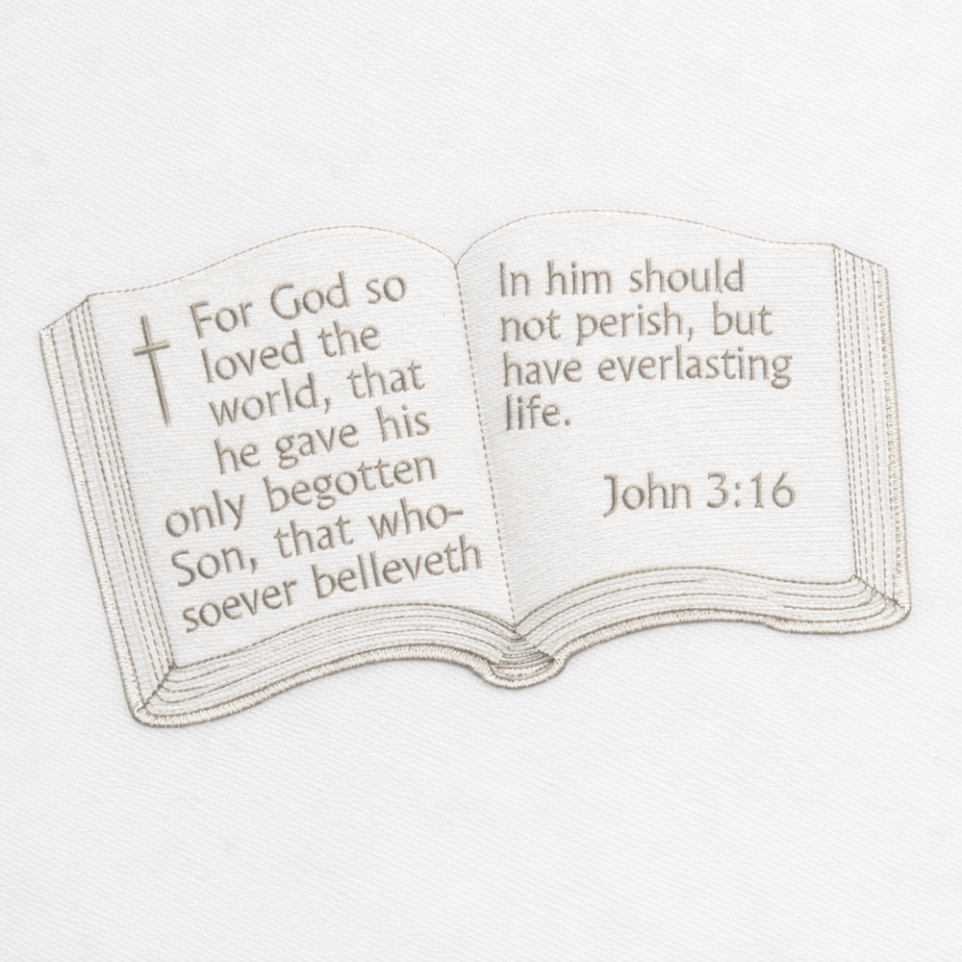 For God so
loved the
world, that
he gave his
only begotten
Son, that who-
soever belleveth
In him should
not perish, but
have everlasting
life.
John 3:16